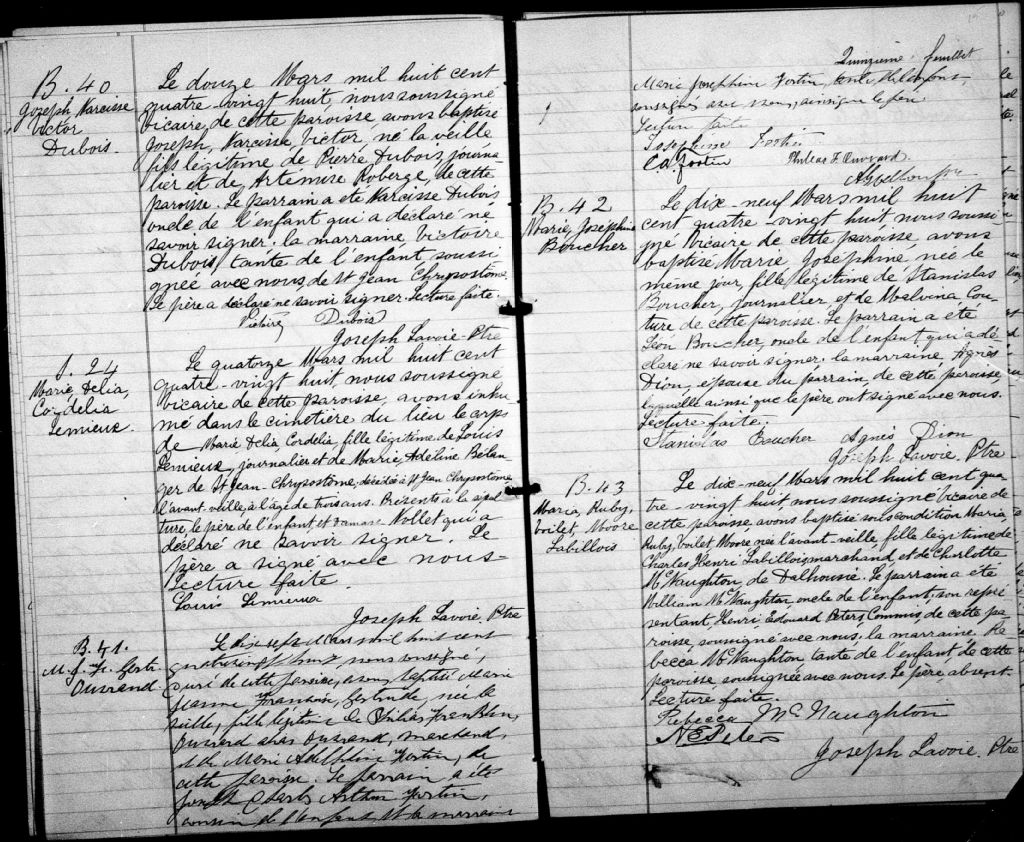 B. 40
Joseph Narcisse
Victor
Dubois.
Le douze Mars mil huit cent
quatre-vingt huit, nous soussigné
Vicaire de cette paroisse avons baptisé
Joseph, Narcisse, Victor, né la veille
fils légitime de Pierre Dubois, journa
lier et de Artémise Roberge, de cette
paroisse. Le parrain a été Narcisse Dubois
oncle de l'enfant qui a déclaré ne
savoir signer. la marraine, Victoire
Dubois, tante de l'enfant soussi
gnée avec nous, de St Jean Chrysostome
Le père a déclaré ne savoir signer. Lecture faite
Victoire Dubois
Joseph Lavoie Ptre
S. 24
Marie, Délia,
Cordélia
Lemieux.
Le quatorze Mars mil huit cent
quatre-vingt huit, nous soussigné
vicaire de cette paroisse, avons inhu
mé dans le cimetière du lieu le corps
de Marie Délia, Cordélia, fille légitime de Louis
Lemieux, journalier et de Marie, Adéline Bélan
ger de St Jean-Chrysostome, décédée à St Jean Chrysostome
l'avant-veille à l'âge de trois ans. Présents à la sépul
ture, le père de l'enfant et Damase Nollet qui a
déclaré ne savoir signer. Le
père a signé avec nous-
Lecture faite
Louis Lemieux
Joseph Lavoie, Ptre
B. 41.
M. J. F. Gert.
Durand
Le dix sept Mars mil huit cent
quatrevingt huit nous soussigné,
curé de cette paroisse, avons baptisé Marie
Jeanne Gertrude, née la
veille, fille légitime de Philias Franklin,
Durand, marchand,
et de Marie Fortin, de
cette paroisse. Le parrain a été
Joseph Charles Arthur Fortin,
cousin de l'enfant et la marraine
Quinzième feuillet
Marie Josephine Fortin,
soussignés avec nous, ainsi que le père.
Lecture faite
Josephine Fortin
C. A. Fortin
B. 42
Marie, Joséphine
Boucher
Le dix-neuf Mars mil huit
cent quatre-vingt huit nous soussi
gné Vicaire de cette paroisse, avons
baptisé Marie Joséphine née le
même jour, fille légitime de Stanislas
Boucher, journalier et de Malvina Cou
ture de cette paroisse. Le parrain a été
Léon Boucher, oncle de l'enfant qui a dé
claré ne savoir signer. la marraine Agnès
Dion, épouse du parrain, de cette paroisse,
laquelle ainsi que le père ont signé avec nous.
Lecture faite.
Stanislas Boucher Agnès Dion
Joseph Lavoie. Ptre
B. 43
Maria, Ruby,
Voilet, Moore
Labillois
Le dix-neuf Mars mil huit cent qua
tre-vingt huit, nous soussigné vicaire de
cette paroisse, avons baptisé sous condition Maria,
Ruby, Voilet, Moore née l'avant-veille, fille légitime de
Charles Henri Labillois, marchand, et de Charlotte
McNaughton, de Dalhousie. Le parrain a été
William McNaughton, oncle de l'enfant, son repré
sentant, Henri Edouard Peters, Commis, de cette pa
roisse, soussigné avec nous; la marraine, Re
becca McNaughton, tante de l'enfant, de cette
paroisse, soussignée avec nous. Le père absent.
Lecture faite.
Rebecca McNaughton
Joseph Lavoie. Ptre